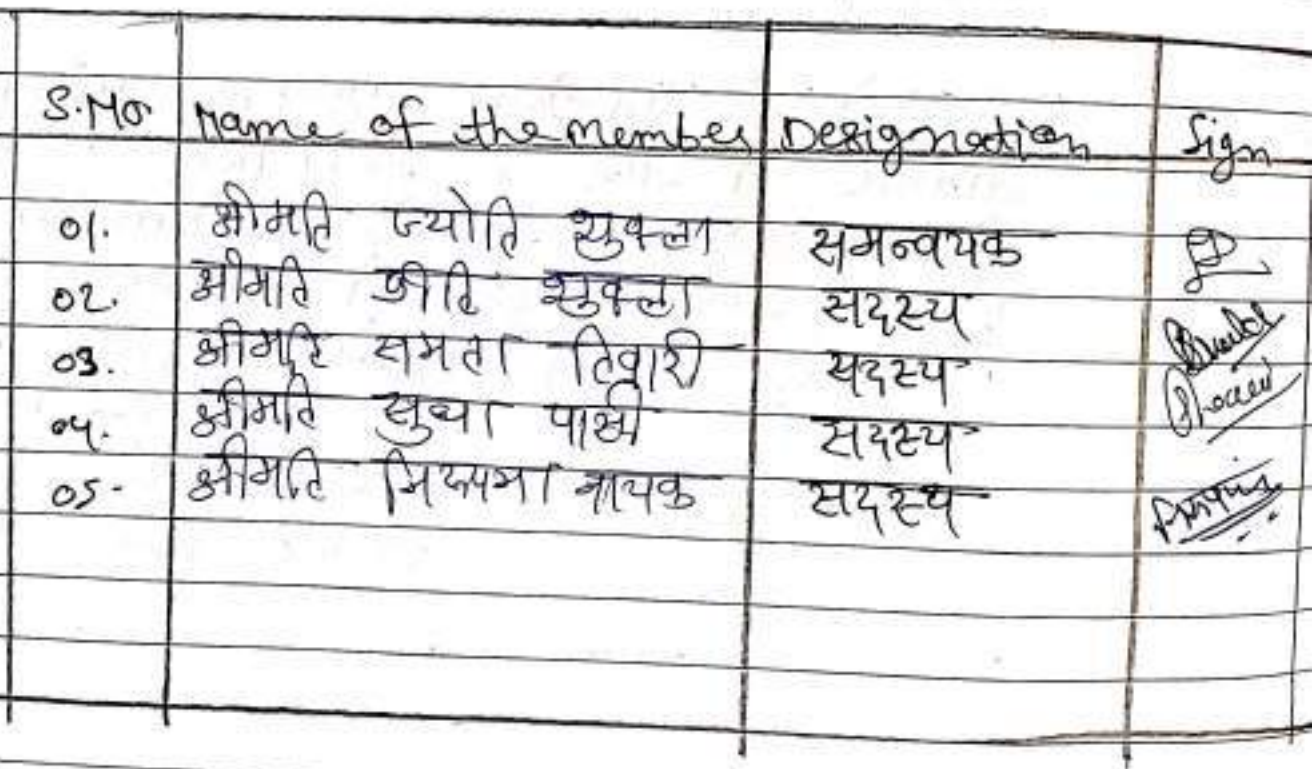 S.No. Name of the member Designation Sign
01. श्रीमति ज्योति शुक्ला समन्वयक
02. श्रीमति प्रीति शुक्ला सदस्य
03. श्रीमति समता तिवारी सदस्य
04. श्रीमति सुधा सदस्य
05. श्रीमति नायक सदस्य